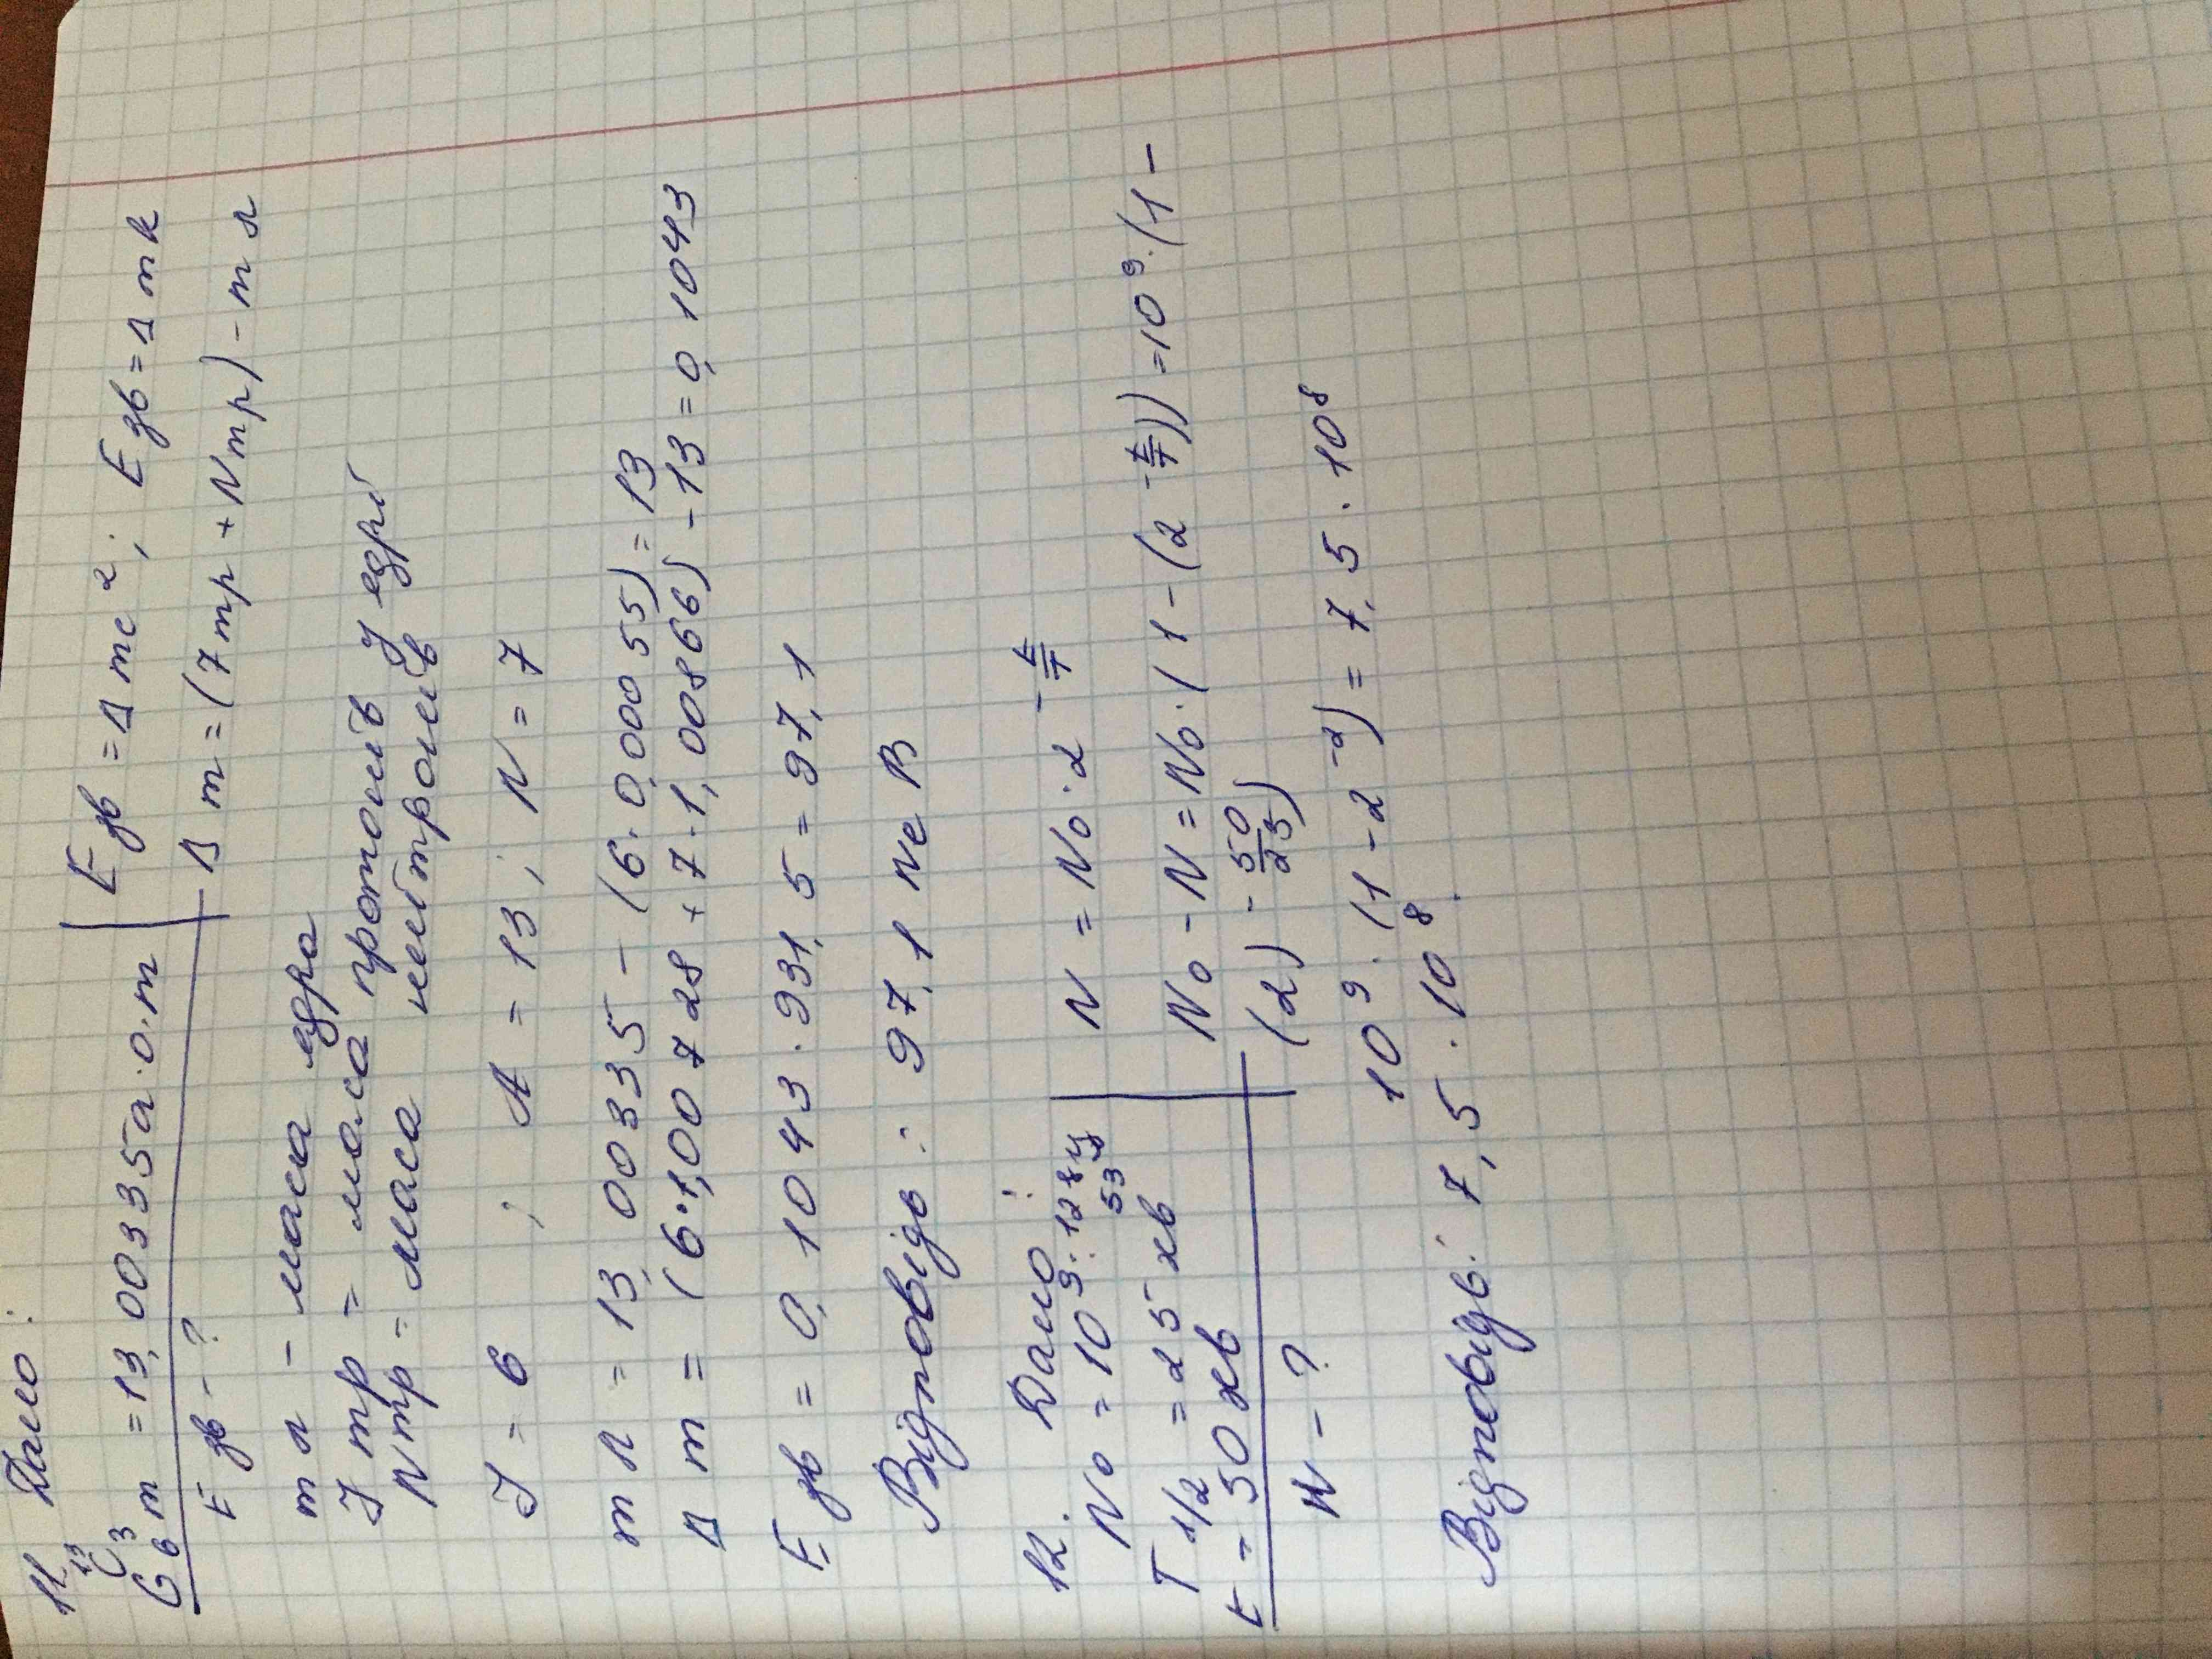 11. Дано:
¹³₆C m = 13,00335 а.о.m
E зв = Δ mc²; E зв = Δ m k
E зв - ?
Δ m = (7 mp + N mp) - m я
m я - маса ядра
Z mp = маса протонів у ядрі
N mp = маса нейтронів
Z = 6 ; A = 13 ; N = 7
m я = 13,00335 - (6 · 0,00055) = 13
Δ m = (6 · 1,00728 + 7 · 1,00866) - 13 = 0,1043
E зв = 0,1043 · 931,5 = 97,1
Відповідь: 97,1 MeB
12. Дано:
N₀ = 10⁹ · ¹²⁸₅₃
T 1/2 = 25 хв
t = 50 хв
N - ?
N = N₀ · 2 ^(-t/T)
N₀ - N = N₀ · (1 - (2 ^(-t/T))) = 10⁹ · (1 -
(2) ^(-50/25))
10⁹ · (1 - 2⁻²) = 7,5 · 10⁸
Відповідь: 7,5 · 10⁸.